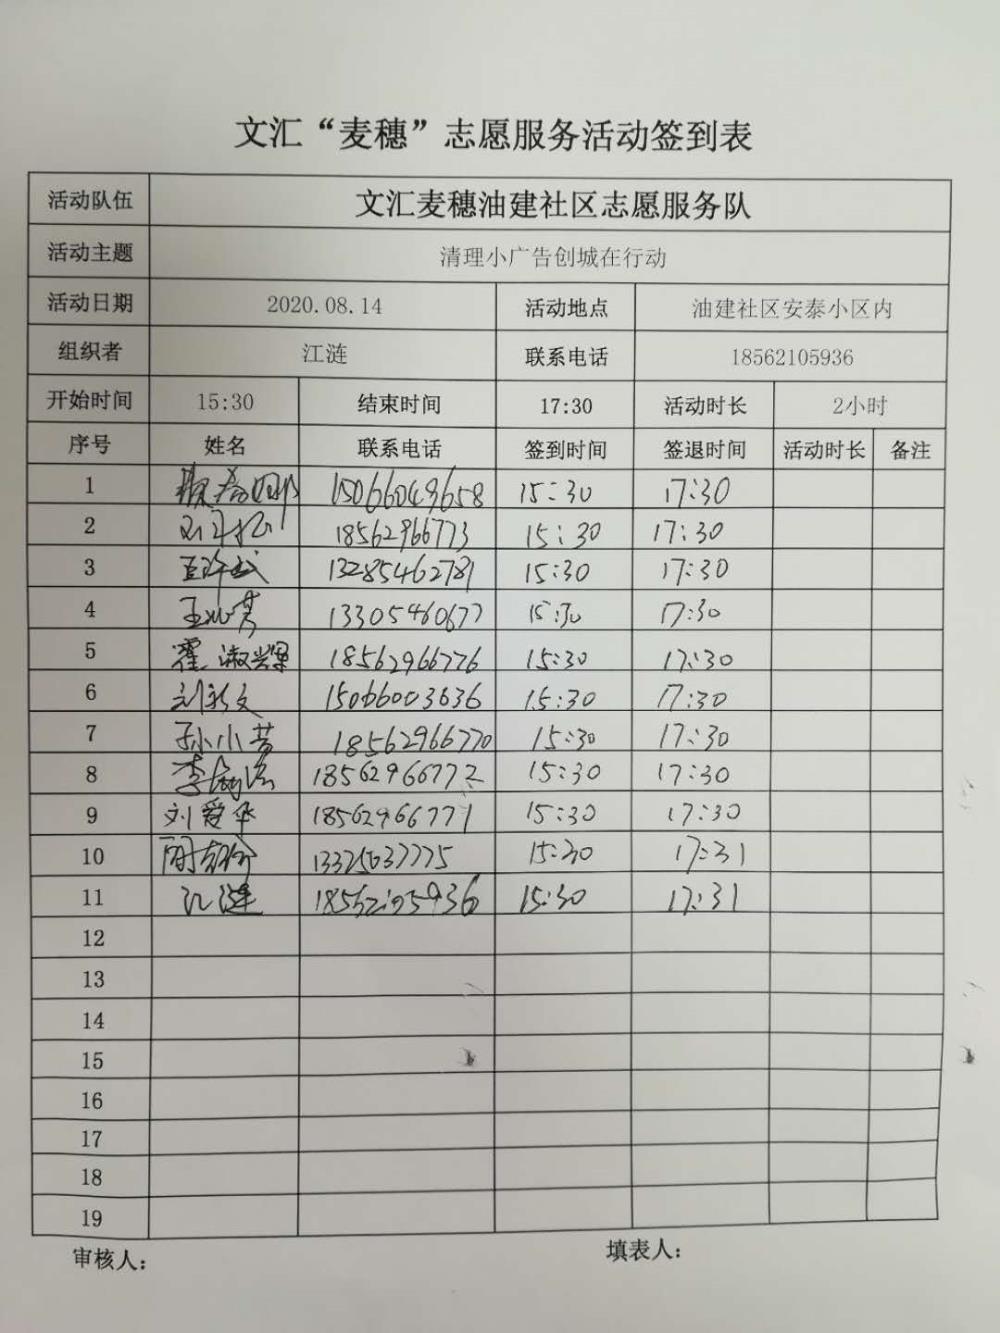 文汇“麦穗”志愿服务活动签到表
活动队伍 文汇麦穗油建社区志愿服务队
活动主题 清理小广告创城在行动
活动日期 2020.08.14 活动地点 油建社区安泰小区内
组织者 江涟 联系电话 18562105936
开始时间 15:30 结束时间 17:30 活动时长 2小时
序号 姓名 联系电话 签到时间 签退时间 活动时长 备注
1 15066049658 15:30 17:30
2 18562966773 15:30 17:30
3 13285462781 15:30 17:30
4 13305460677 15:30 17:30
5 翟淑辉 18562966776 15:30 17:30
6 刘新文 15066003636 15:30 17:30
7 孙小芳 18562966770 15:30 17:30
8 18562966772 15:30 17:30
9 刘爱华 18562966771 15:30 17:30
10 13325037775 15:30 17:31
11 江涟 18562105936 15:30 17:31
12
13
14
15
16
17
18
19
审核人： 填表人：